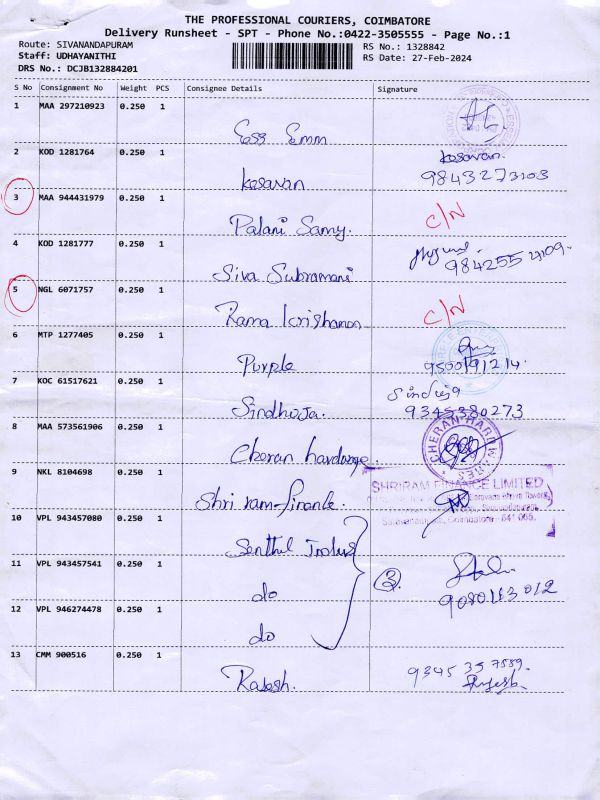 THE PROFESSIONAL COURIERS, COIMBATORE
Delivery Runsheet - SPT - Phone No.:0422-3505555 - Page No.:1
Route: SIVANANDAPURAM RS No.: 1328842
Staff: UDHAYANITHI RS Date: 27-Feb-2024
DRS No.: DCJB132884201
S No Consignment No Weight PCS Consignee Details Signature
1 MAA 297210923 0.250 1
Ess Emm
2 KOD 1281764 0.250 1 kesavan.
kesavan 9843273103
3 MAA 944431979 0.250 1 C/N
Palani Samy.
4 KOD 1281777 0.250 1
Siva Subramani
5 NGL 6071757 0.250 1 C/N
Rama krishanan
6 MTP 1277405 0.250 1
Purple 9500191214
7 KOC 61517621 0.250 1 Sinduja
Sindhuja. 9345380273
8 MAA 573561906 0.250 1
Cheran hardwage. CHERAN HARDWARES
9 NKL 8104698 0.250 1 SHRIRAM FINANCE LIMITED
Shri ram finance. Coimbatore - 641 035.
10 VPL 943457080 0.250 1
Senthil Indus
11 VPL 943457541 0.250 1 3.
do 9080163012
12 VPL 946274478 0.250 1
do
13 CMM 900516 0.250 1 9345 357559.
Rajesh. Rajesh